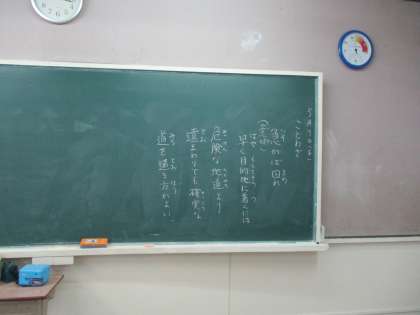 ことわざ
急がば回れ
(意味)
早く目的地に着くには
危険な近道より
遠まわりでも確実な
道を通る方がよい。